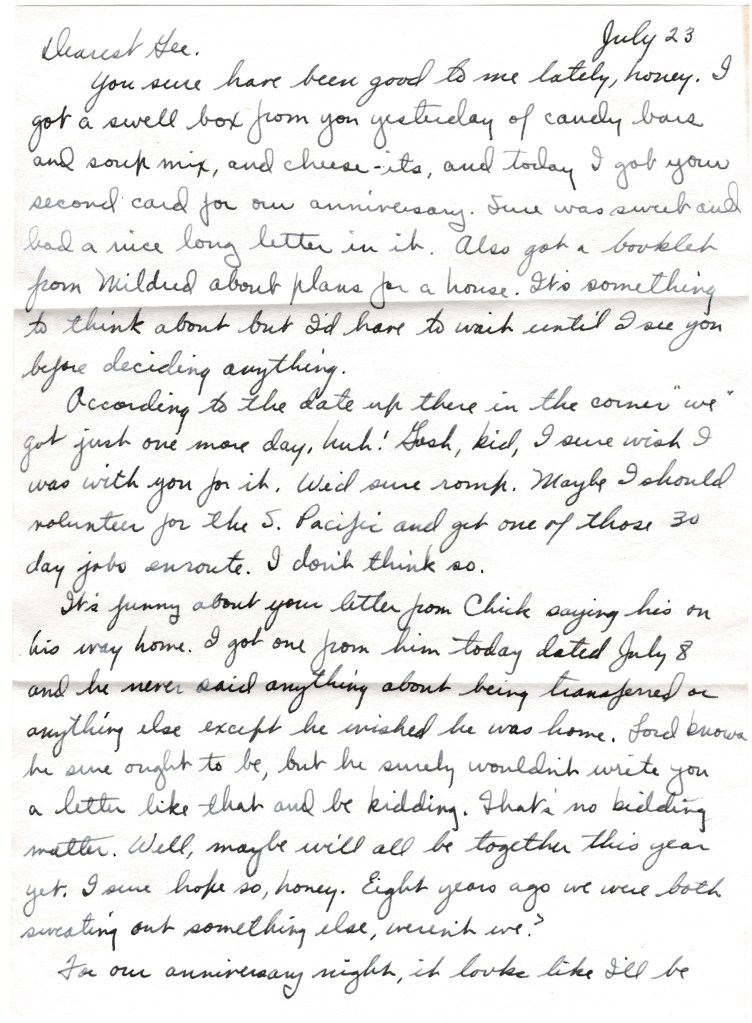 July 23
Dearest Gee.
You sure have been good to me lately, honey. I
got a swell box from you yesterday of candy bars
and soup mix, and cheese-its, and today I got your
second card for our anniversary. Sure was sweet and
had a nice long letter in it. Also got a booklet
from Mildred about plans for a house. It's something
to think about but I'd have to wait until I see you
before deciding anything.
According to the date up there in the corner "we"
got just one more day, huh! Gosh, kid, I sure wish I
was with you for it. We'd sure romp. Maybe I should
volunteer for the S. Pacific and get one of those 30
day jobs enroute. I don't think so.
It's funny about your letter from Chick saying his on
his way home. I got one from him today dated July 8
and he never said anything about being transferred or
anything else except he wished he was home. Lord knows
he sure ought to be, but he surely wouldn't write you
a letter like that and be kidding. That's no kidding
matter. Well, maybe we'll all be together this year
yet. I sure hope so, honey. Eight years ago we were both
sweating out something else, weren't we?
For our anniversary night, it looks like I'll be